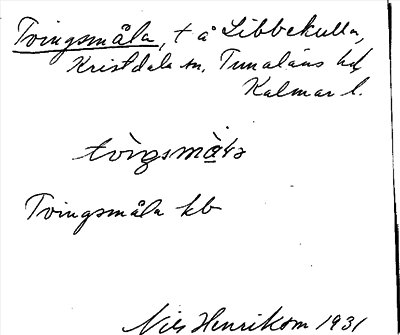 Tvingsmåla, t å Libbekulla,
Kristdala sn, Tunaläns hd
Kalmar l.
Tvingsmåla kb
Nils Henrikson 1931